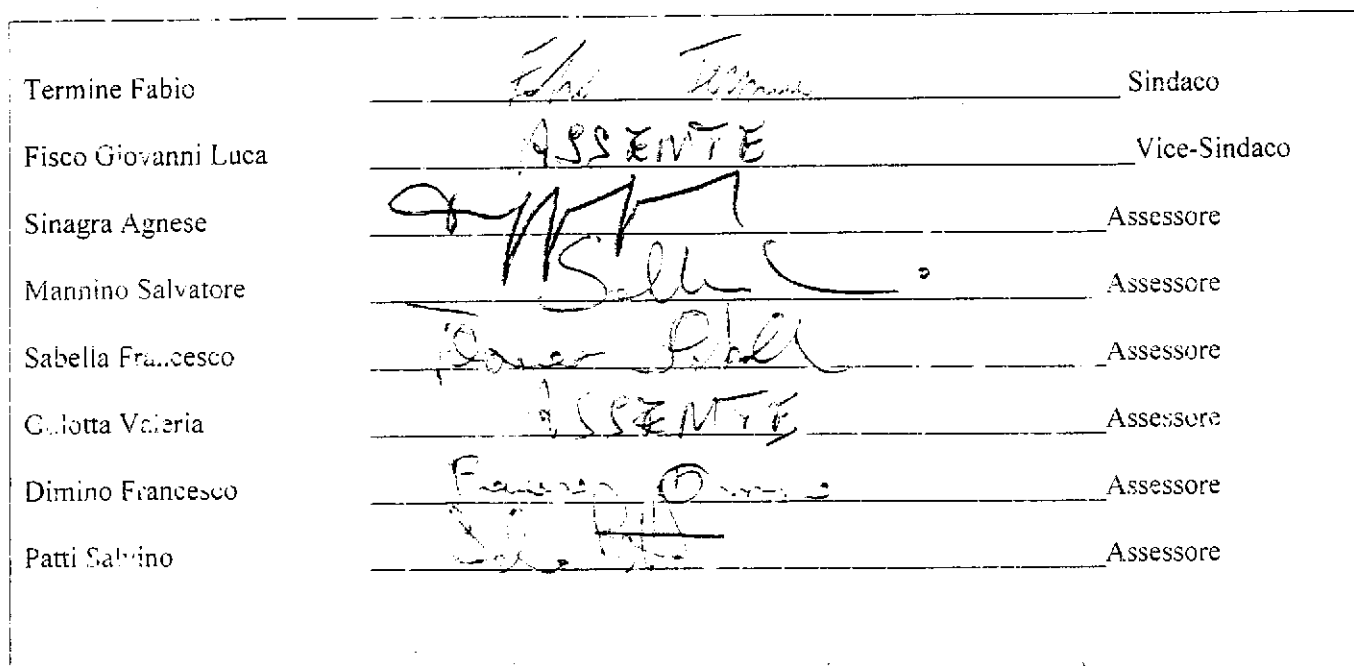 Termine Fabio Fabio Termine Sindaco
Fisco Giovanni Luca ASSENTE Vice-Sindaco
Sinagra Agnese Assessore
Mannino Salvatore Assessore
Sabella Francesco Assessore
Gulotta Valeria ASSENTE Assessore
Dimino Francesco Assessore
Patti Salvino Assessore